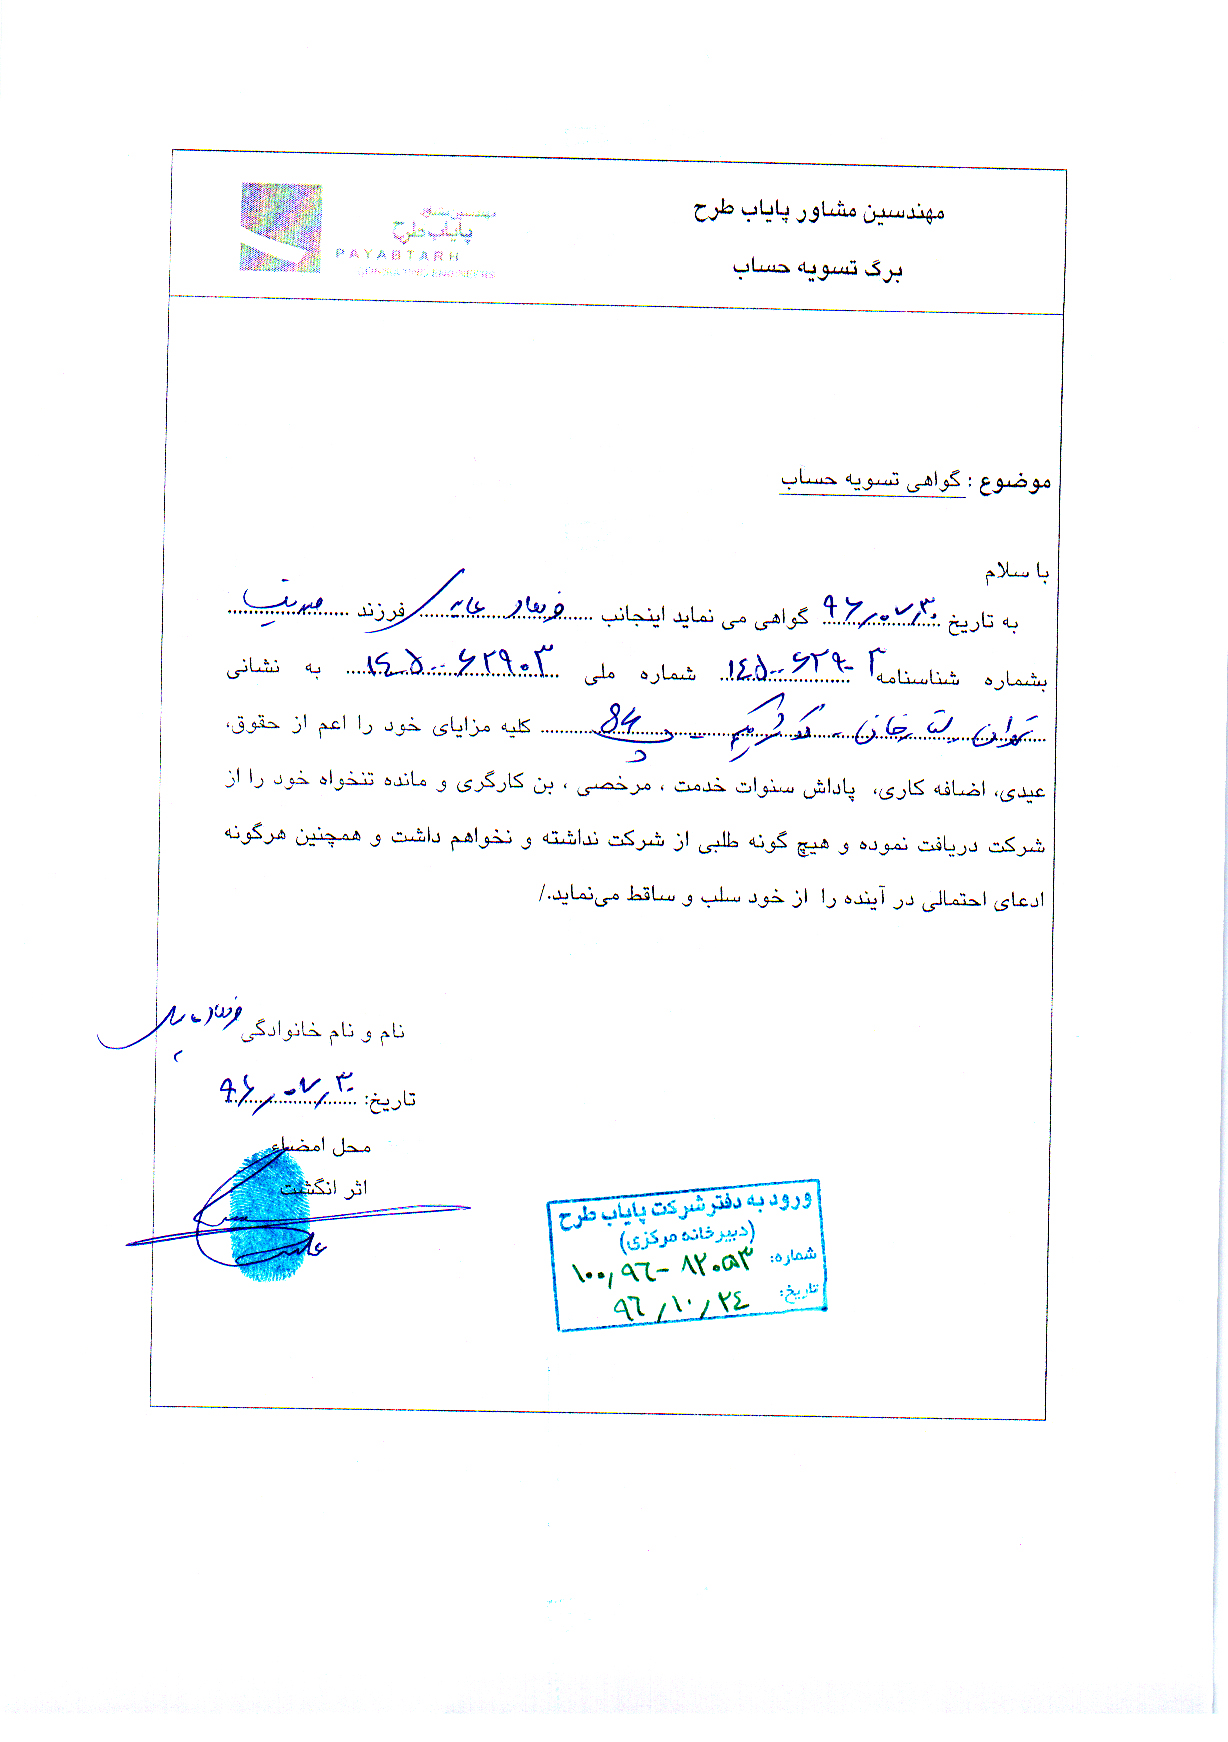 مهندسین مشاور پایاب طرح
برگ تسویه حساب
مهندسین مشاور
پایاب طرح
PAYABTARH
CONSULTING ENGINEERS
موضوع : گواهی تسویه حساب
با سلام
به تاریخ ۹۶/۰۷/۳۰ گواهی می نماید اینجانب فرهاد فرزند
بشماره شناسنامه ۱۴۵۰۰۶۲۹۰۳ شماره ملی ۱۴۵۰۰۶۲۹۰۳ به نشانی
تهران کلیه مزایای خود را اعم از حقوق،
عیدی، اضافه کاری، پاداش سنوات خدمت ، مرخصی ، بن کارگری و مانده تنخواه خود را از
شرکت دریافت نموده و هیچ گونه طلبی از شرکت نداشته و نخواهم داشت و همچنین هرگونه
ادعای احتمالی در آینده را از خود سلب و ساقط می‌نماید./
نام و نام خانوادگی فرهاد
تاریخ: ۹۶/۰۷/۳۰
محل امضاء
اثر انگشت
ورود به دفتر شرکت پایاب طرح
(دبیرخانه مرکزی)
شماره: ۱۰۰/۹۶-۸۲۰۵۳
تاریخ: ۹۶/۱۰/۲۴